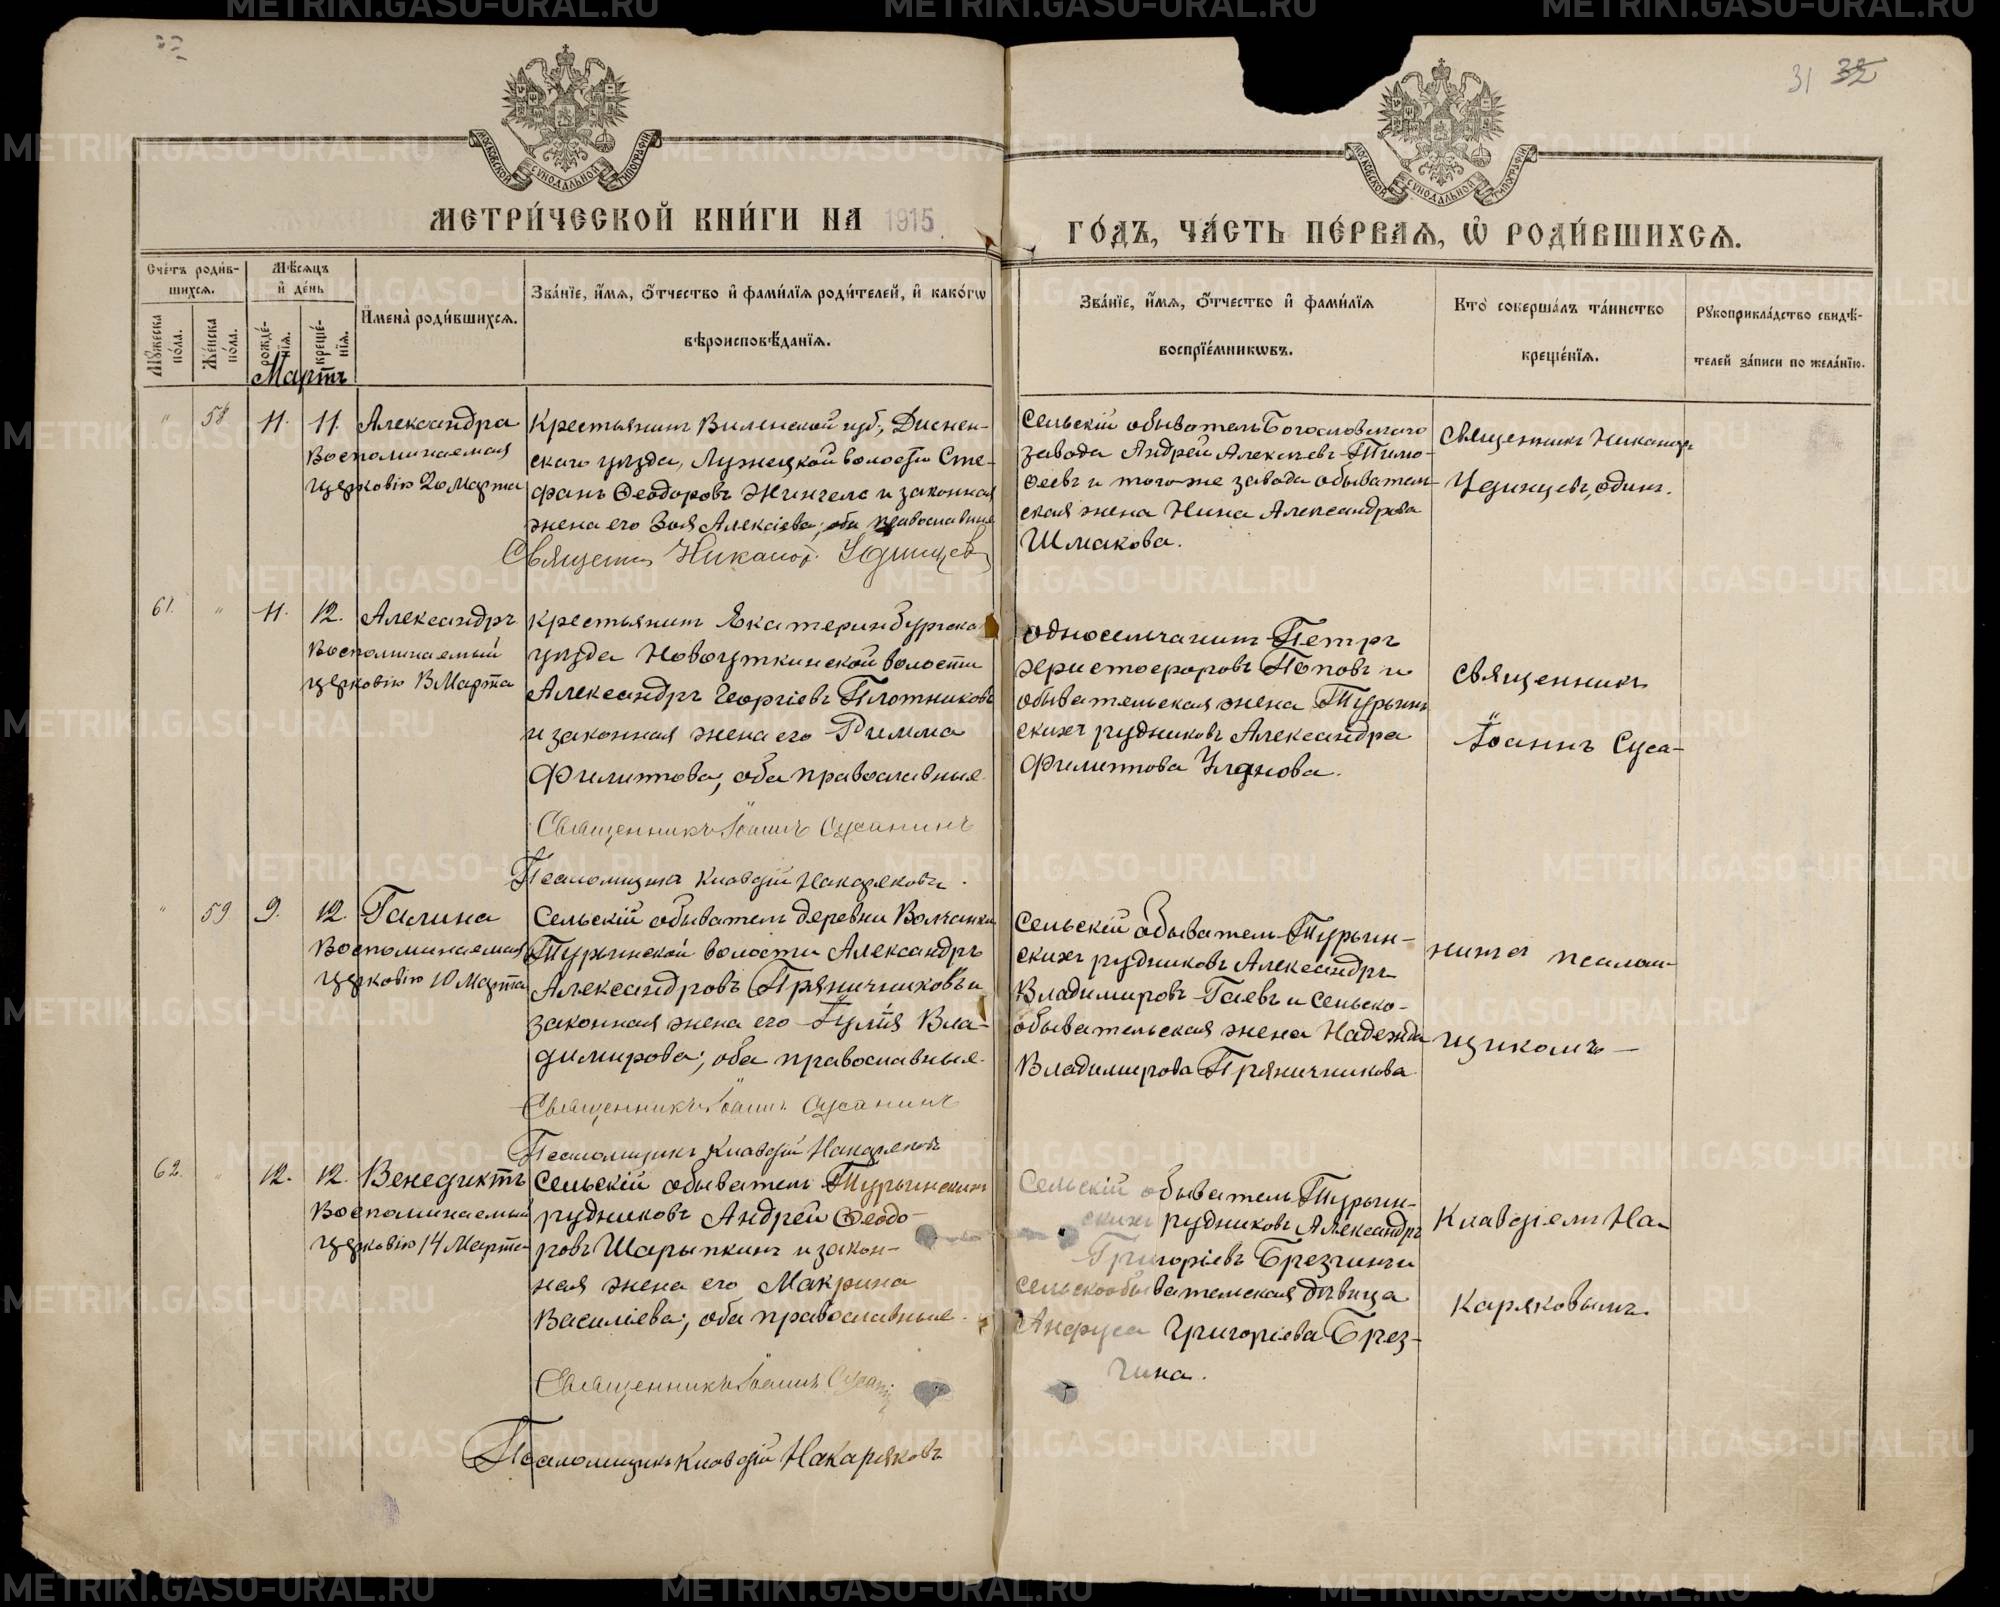 31 32
МОСКОВСКОЙ СУНОДАЛЬНОЙ ТИПОГРАФІИ
МОСКОВСКОЙ СУНОДАЛЬНОЙ ТИПОГРАФІИ
МЕТРИ́ЧЕСКОЙ КНИ́ГИ НА 1915
ГО́ДЪ, ЧА́СТЬ ПЕ́РВАѦ, Ѡ҆ РОДИ́ВШИХСѦ.
Сче́тъ роди́в-
шихсѧ.
Мѣ́сѧцъ
и҆ де́нь
Мꙋ́жеска по́ла.
Же́нска по́ла.
рожде́-
нїѧ.
креще́-
нїѧ.
И҆мена̀ роди́вшихсѧ.
Зва́нїе, и҆́мѧ, ѻ҆́тчество и҆ фами́лїѧ роди́телей, и҆ како́гѡ
вѣроисповѣ́данїѧ.
Зва́нїе, и҆́мѧ, ѻ҆́тчество и҆ фами́лїѧ
воспрїе́мникѡвъ.
Кто̀ соверша́лъ та́инство
креще́нїѧ.
Рꙋкоприкла́дство свидѣ́-
телей за́писи по жела́нїю.
Мартъ
" 58 11. 11. Александра
Воспоминаемая
церковію 20 Марта
Крестьянинъ Виленской губ., Диснен-
скаго уѣзда, Лужецкой волости Сте-
фанъ Ѳеодоровъ и законная
жена его Зоя Алексіева; оба православные
Священ. Никанор. Удинцев
Сельскій обыватель Богословскаго
завода Андрей Алексѣевъ Тимо-
ѳеевъ и того же завода обыватель-
ская жена Нина Александрова
Шмакова.
Священникъ Никаноръ
Удинцевъ, одинъ.
61. " 11. 12. Александръ
Воспоминаемый
церковію 13 Марта
Крестьянинъ Екатеринбургска
уѣзда Новоуткинской волости
Александръ Георгіевъ Плотниковъ
и законная жена его Римма
Филиппова; оба православные.
Священникъ Іоаннъ Сусанинъ
Псаломщикъ Клавдій Накаряковъ.
односельчанинъ Петръ
Христофоровъ Поповъ и
обывательская жена Турьин-
скихъ рудниковъ Александра
Филиппова Ударова.
Священникъ
Іоаннъ Суса-
" 59 9. 12. Галина
Воспоминаемая
церковію 10 Марта
Сельскій обыватель деревни Волчанки
Турьинской волости Александръ
Александровъ Пряничниковъ и
законная жена его Іулія Вла-
димирова; оба православные.
Священникъ Іоаннъ Сусанинъ
Псаломщикъ Клавдій Накаряковъ
Сельскій обыватель Турьин-
скихъ рудниковъ Александръ
Владимировъ Гаевъ и сельско-
обывательская жена Надежда
Владимирова Пряничникова
нинъ псалом-
щикомъ —
62. " 12. 12. Венедиктъ
Воспоминаемый
церковію 14 Марта
Сельскій обыватель Турьинскихъ
рудниковъ Андрей Ѳеодо-
ровъ Шарыпкинъ и закон-
ная жена его Макрина
Василіева; оба православные.
Священникъ Іоаннъ Сусанин
Псаломщикъ Клавдій Накаряковъ
Сельскій обыватель Турьин-
скихъ рудниковъ Александръ
Григоріевъ Брезгинъ и
сельскообывательская дѣвица
Анфуса Григоріева Брез-
гина.
Клавдіемъ На-
каряковымъ.